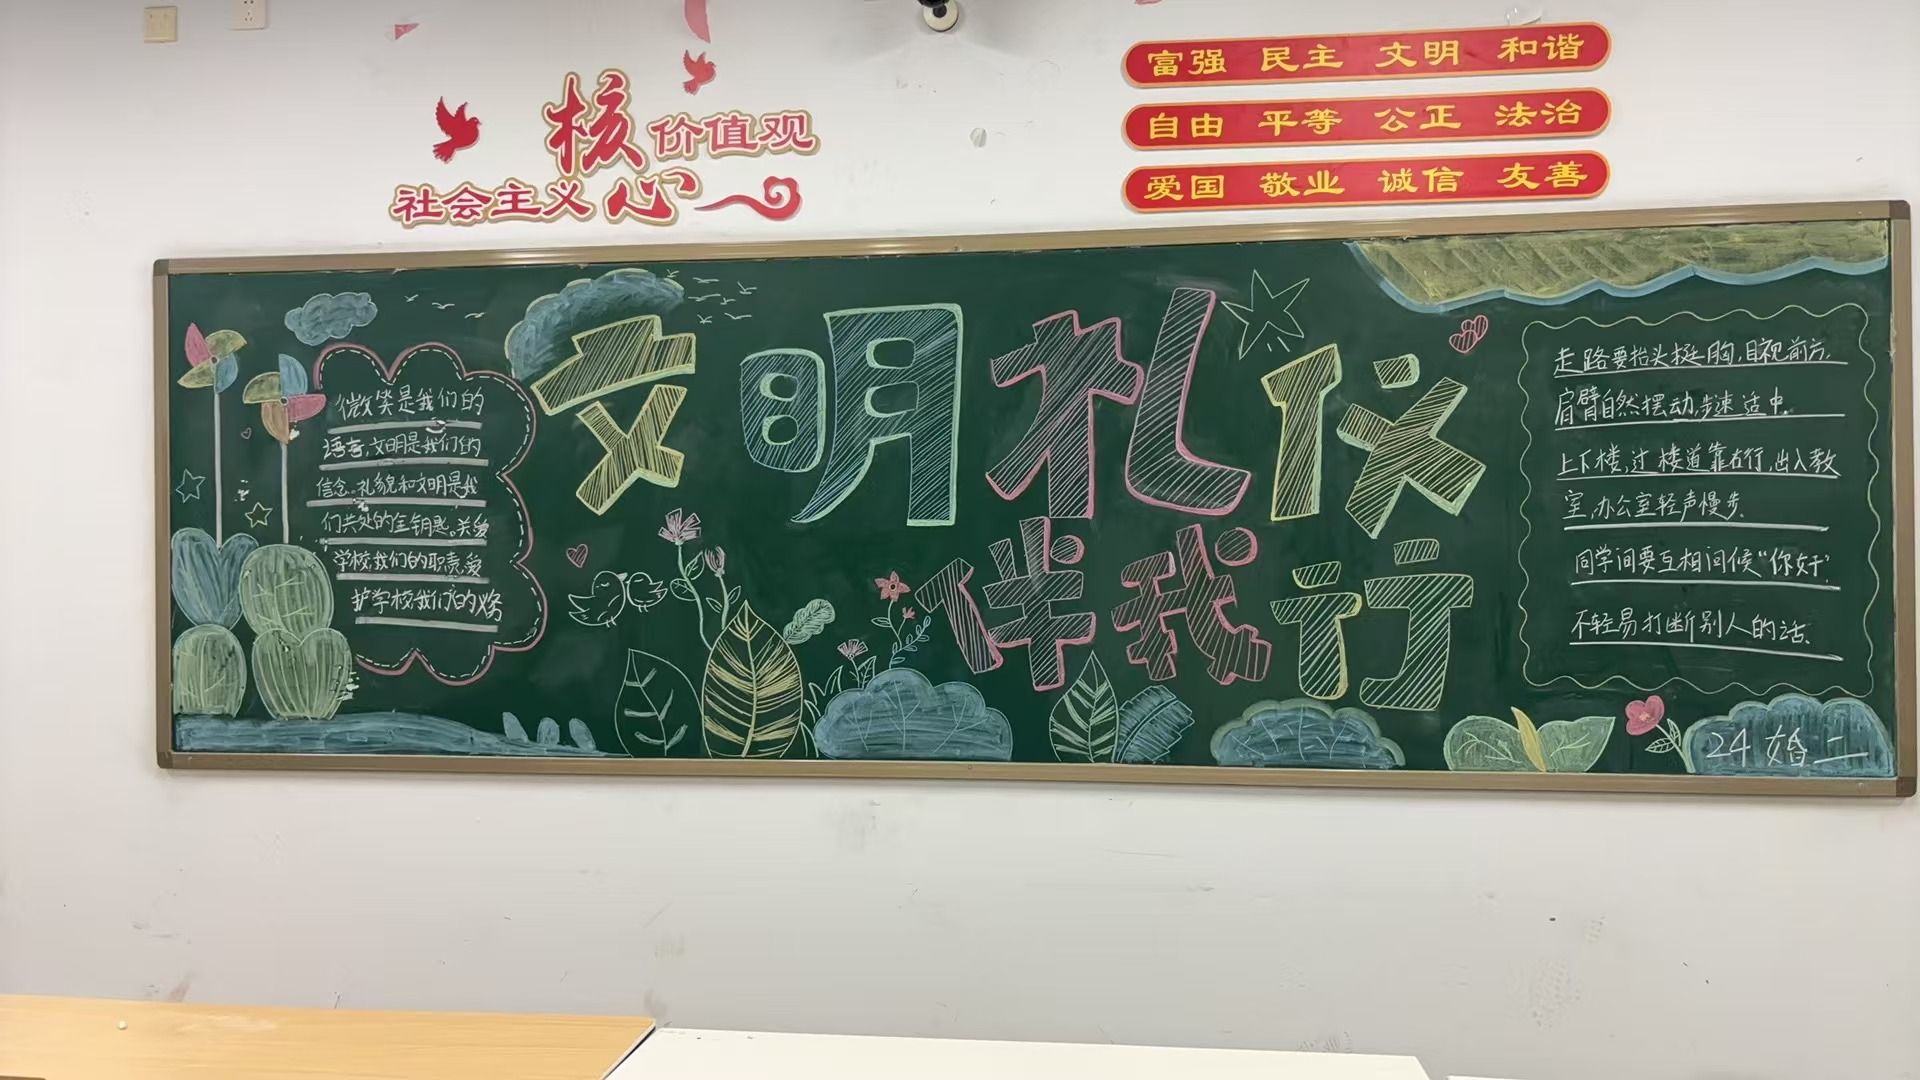 核
价值观
社会主义
心
富强 民主 文明 和谐
自由 平等 公正 法治
爱国 敬业 诚信 友善
文明礼仪
伴我行
微笑是我们的
语言,文明是我们的
信念。礼貌和文明是我
们共处的金钥匙。关爱
学校我们的职责,爱
护学校我们的义务
走路要抬头挺胸,目视前方,
肩臂自然摆动,步速适中。
上下楼,过楼道靠右行,出入教
室,办公室轻声慢步。
同学间要互相问候“你好”,
不轻易打断别人的话。
24婚二